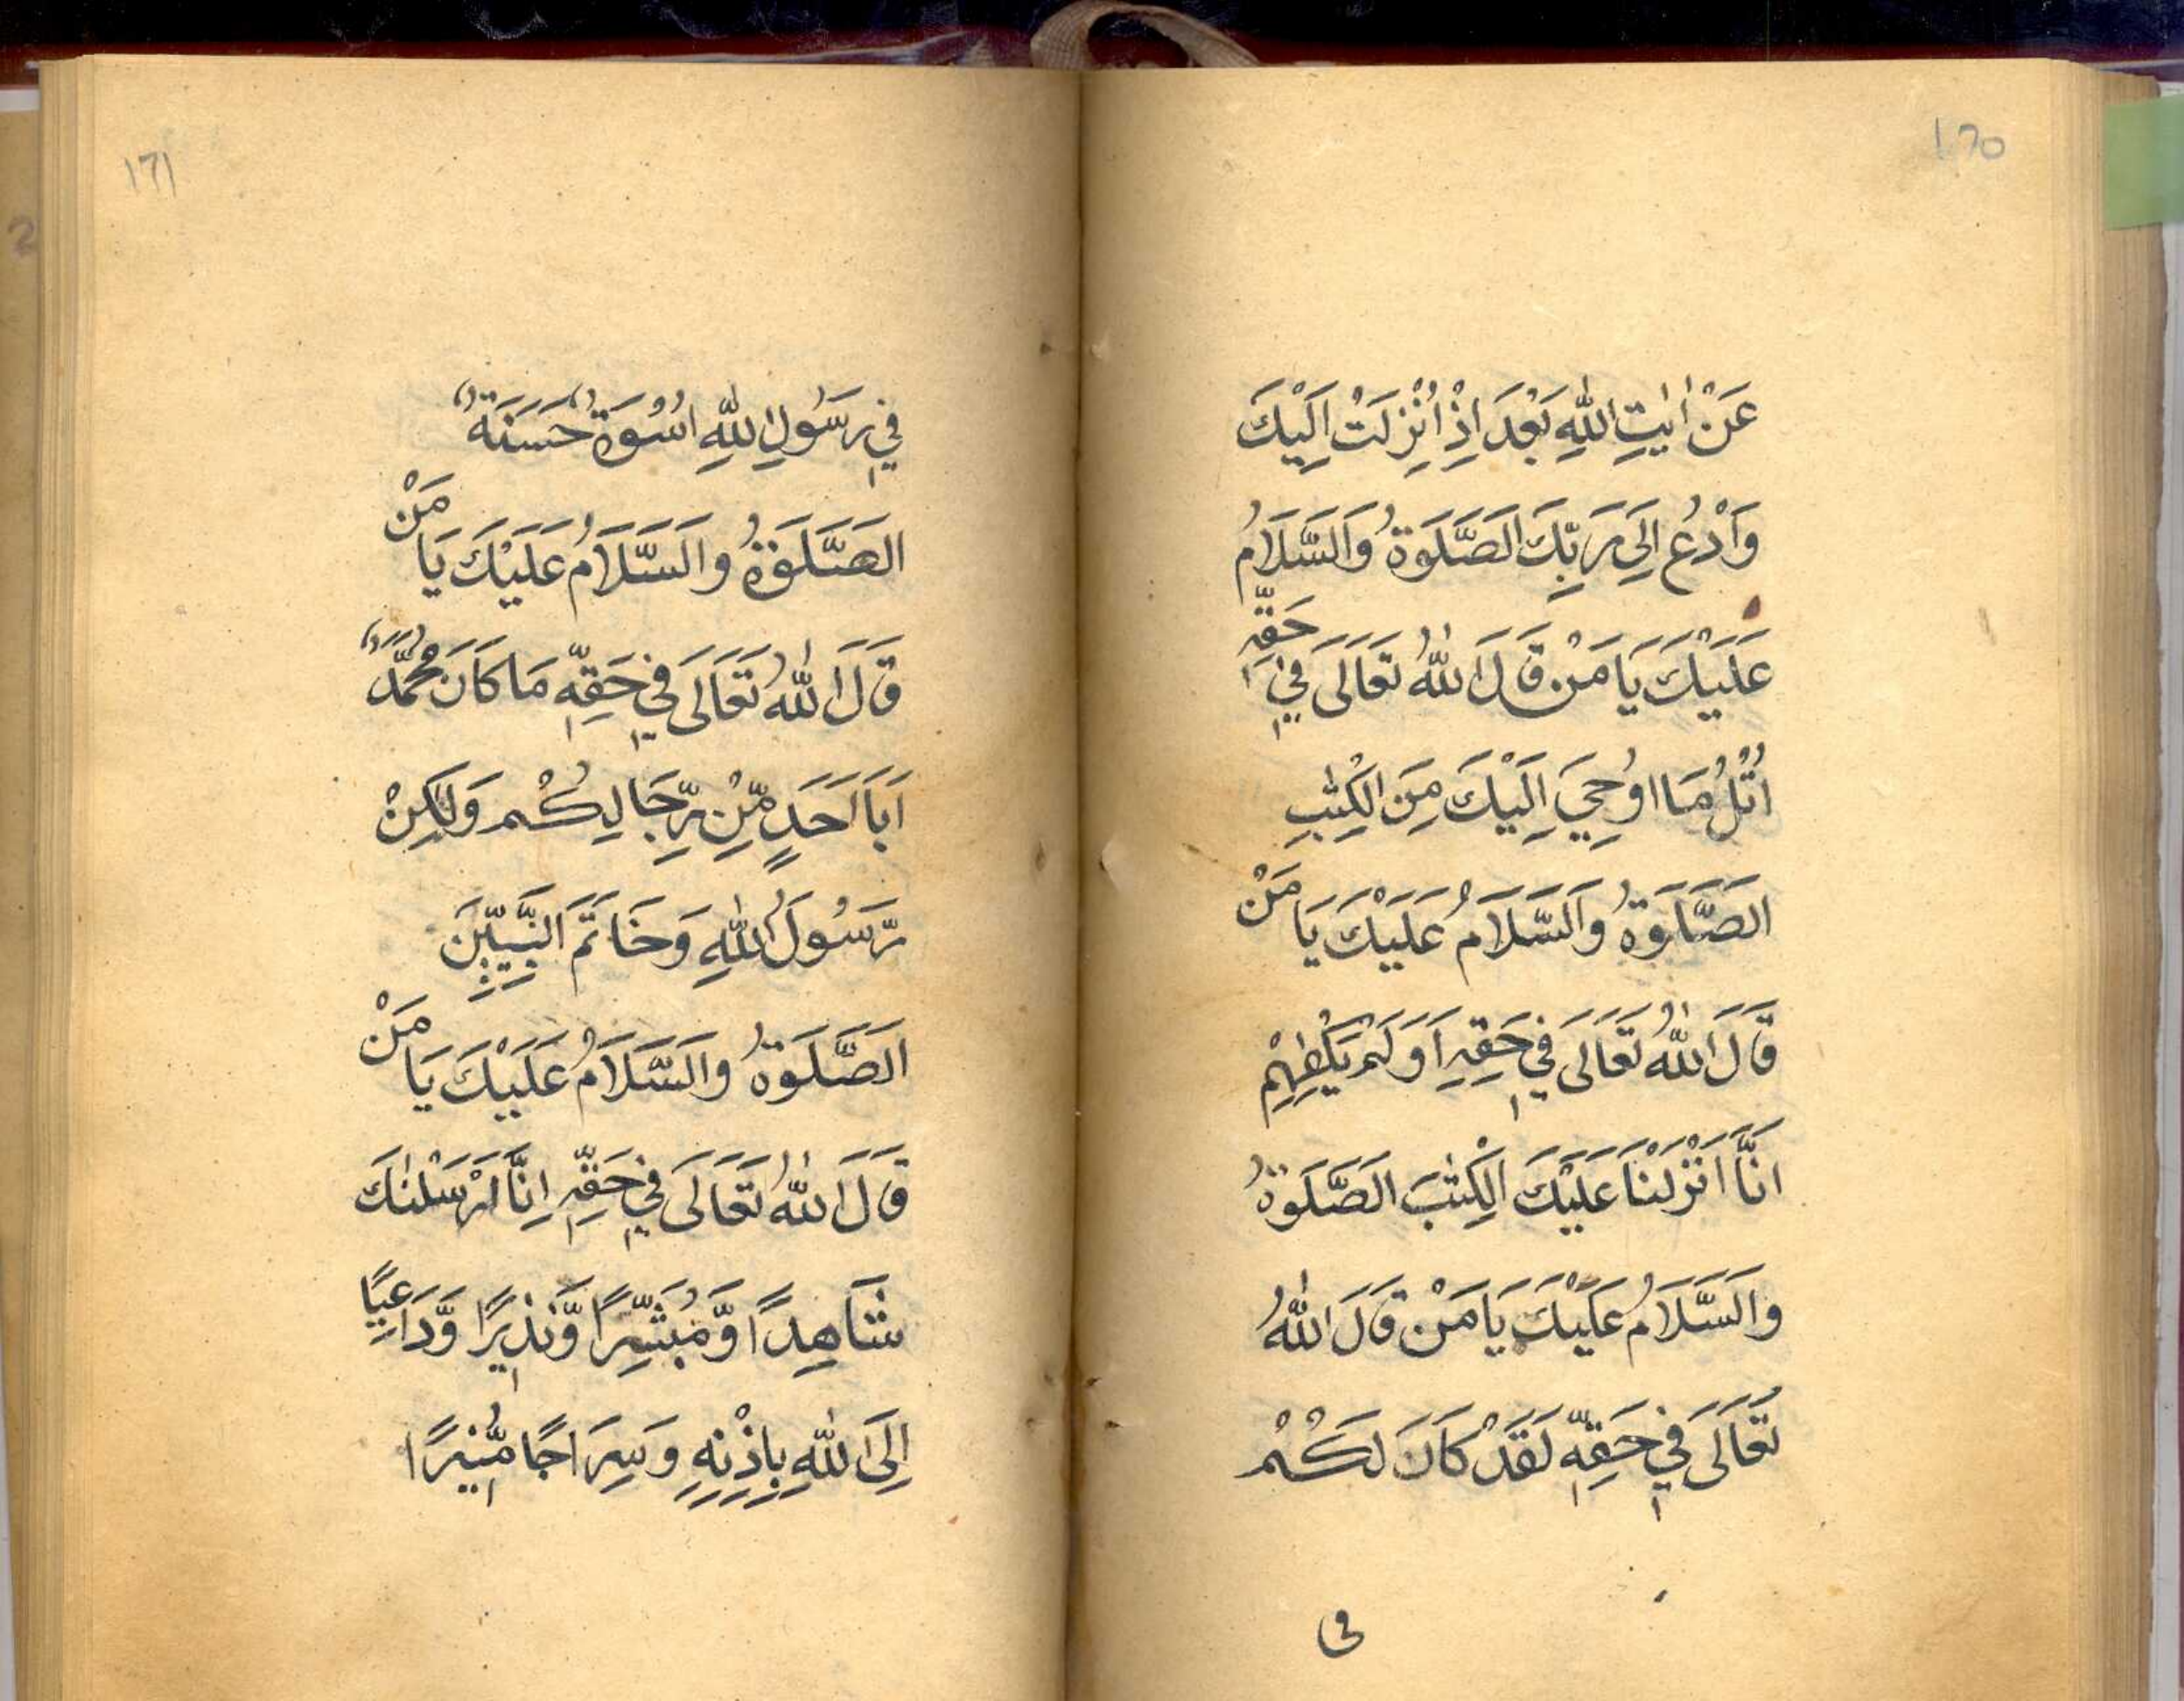 عَنْ اٰيٰتِ اللّٰهِ بَعْدَ اِذْ اُنْزِلَتْ اِلَيْكَ
وَادْعُ اِلَى رَبِّكَ الصَّلَوةُ وَالسَّلَامُ
عَلَيْكَ يَا مَنْ قَالَ اللّٰهُ تَعَالَى فِي حَقِّهٖ
اُتْلُ مَا اُوْحِيَ اِلَيْكَ مِنَ الْكِتٰبِ
الصَّلَوةُ وَالسَّلَامُ عَلَيْكَ يَا مَنْ
قَالَ اللّٰهُ تَعَالَى فِي حَقِّهٖ اَوَلَمْ يَكْفِهِمْ
اَنَّا اَنْزَلْنَا عَلَيْكَ الْكِتٰبَ الصَّلَوةُ
وَالسَّلَامُ عَلَيْكَ يَا مَنْ قَالَ اللّٰهُ
تَعَالَى فِي حَقِّهٖ لَقَدْ كَانَ لَكُمْ
فى
١٦١
فِي رَسُولِ اللّٰهِ اُسْوَةٌ حَسَنَةٌ
الصَّلَوةُ وَالسَّلَامُ عَلَيْكَ يَا مَنْ
قَالَ اللّٰهُ تَعَالَى فِي حَقِّهٖ مَا كَانَ مُحَمَّدٌ
اَبَا اَحَدٍ مِّنْ رِّجَالِكُمْ وَلٰكِنْ
رَّسُولَ اللّٰهِ وَخَاتَمَ النَّبِيّٖنَ
الصَّلَوةُ وَالسَّلَامُ عَلَيْكَ يَا مَنْ
قَالَ اللّٰهُ تَعَالَى فِي حَقِّهٖ اِنَّا اَرْسَلْنٰكَ
شَاهِدًا وَّمُبَشِّرًا وَّنَذِيْرًا وَّدَاعِيًا
اِلَى اللّٰهِ بِاِذْنِهٖ وَسِرَاجًا مُّنِيْرًا